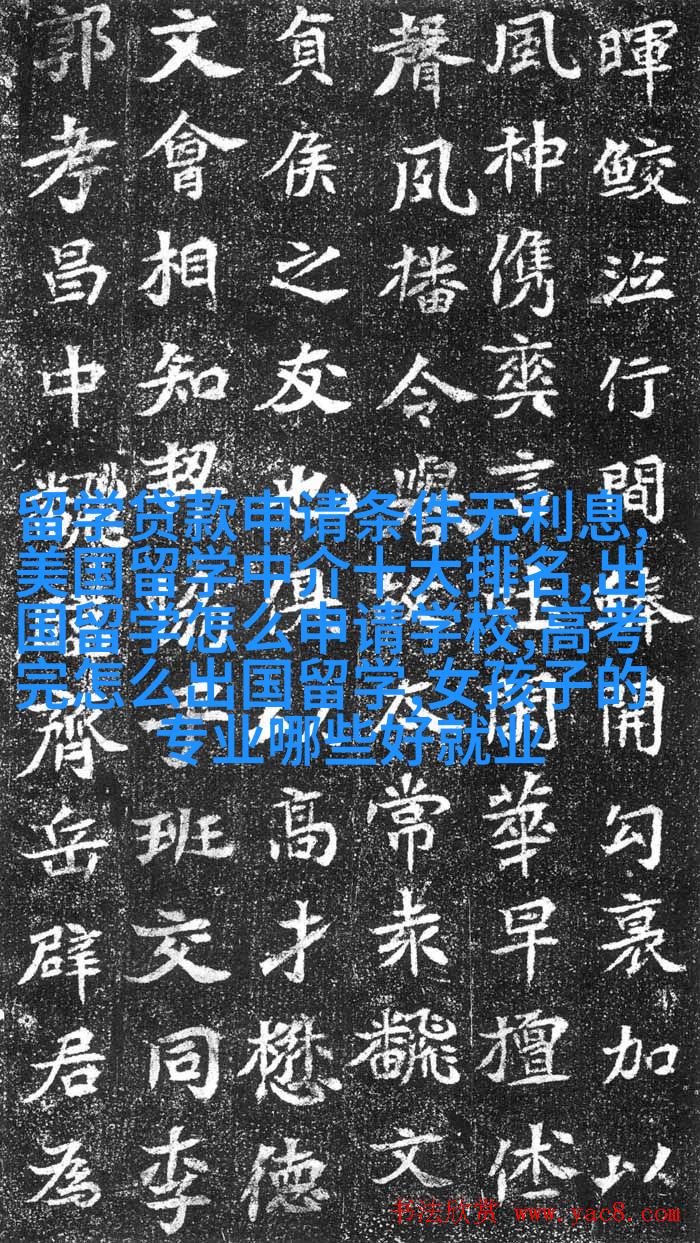 暉鮫泣行間開勾裏加以
風神儁奕言華早擅
聲夙播令常表飜文
貞侯之友也得高才懋德
文會相知契班交同李
郭孝昌中飜齊岳辟君為
留学贷款申请条件无利息,
美国留学中介十大排名,出
国留学怎么申请学校,高考
完怎么出国留学,女孩子的
专业哪些好就业
书法欣赏 www.yac8.com